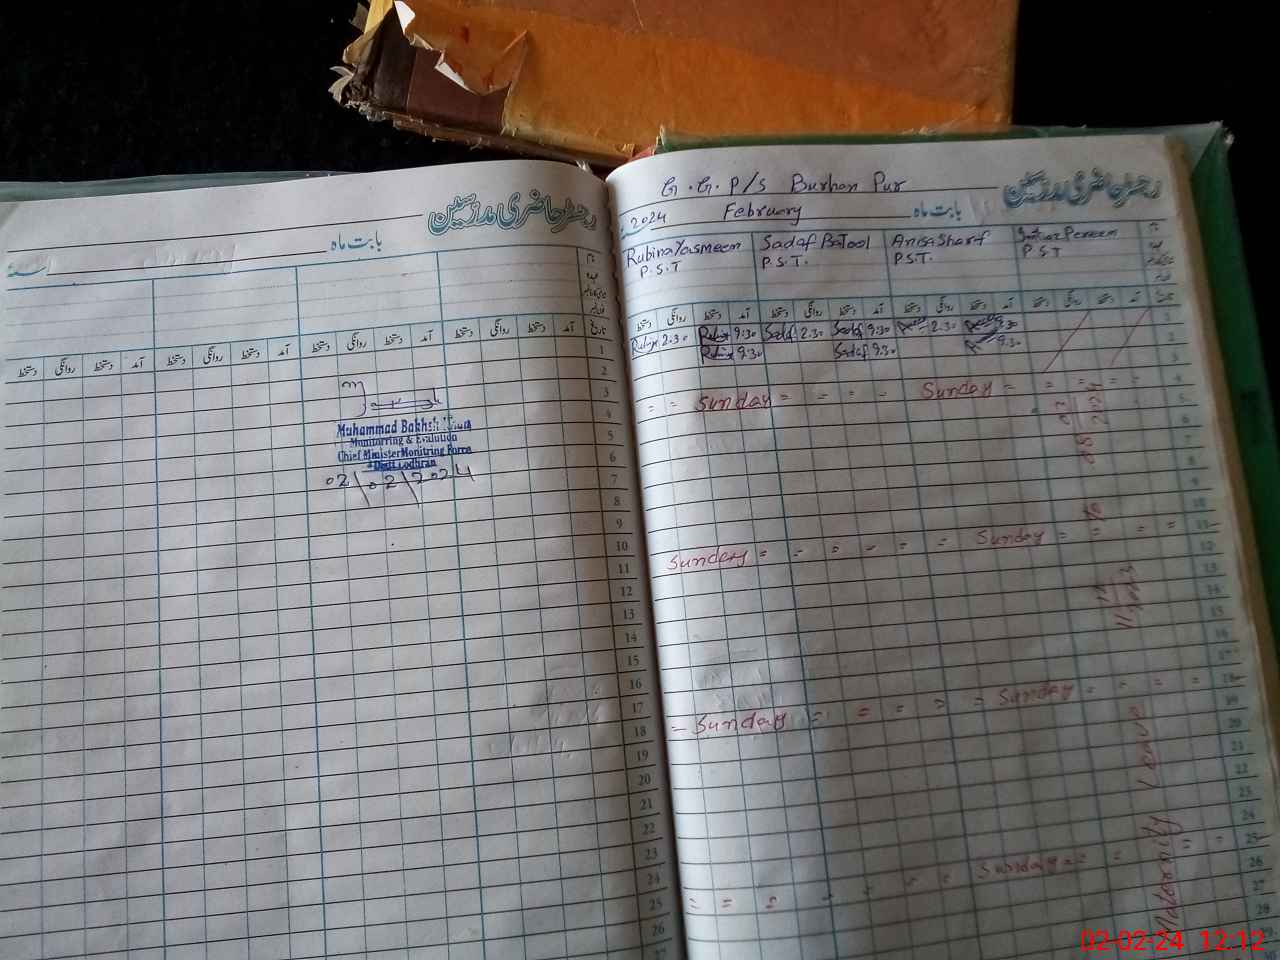 رجسٹر حاضری مدرسین
بابت ماہ
سنہ
دستخط روانگی دستخط آمد دستخط روانگی دستخط آمد دستخط روانگی دستخط آمد تاریخ
1
2
3
4
5
6
7
8
9
10
11
12
13
14
15
16
17
18
19
20
21
22
23
24
25
26
27
Muhammad Bakhsh
Monitorring & Evalution
Chief Minister Monitring Force
Distt Lodhran
02/02/2024
G.G.P/S Burhan Pur
رجسٹر حاضری مدرسین
2024 February بابت ماہ
Rubina Yasmeen Sadaf BaTool Anisa Sharif Perveen
P.S.T P.S.T. P.S.T. P.S.T
دستخط روانگی دستخط آمد دستخط روانگی دستخط آمد دستخط روانگی دستخط آمد دستخط روانگی دستخط آمد تاریخ
Rubina 2.30 Rubina 9:30 Sadaf 2.30 Sadaf 9:30 2.30 9.30 1
Rubina 9.30 Sadaf 9.30 9.30 2
= = Sunday = = = - Sunday = = = = = 4
5
6
7
8
9
10
Sunday = - = - = = Sunday = = = = = 11
12
13
14
15
16
17
- Sunday = = = = = Sunday = = = = 18
19
20
21
22
23
24
= = = - = = = Sunday = = = = = 25
26
27
28
29
30
Maternity Leave
02-02-24 12:12